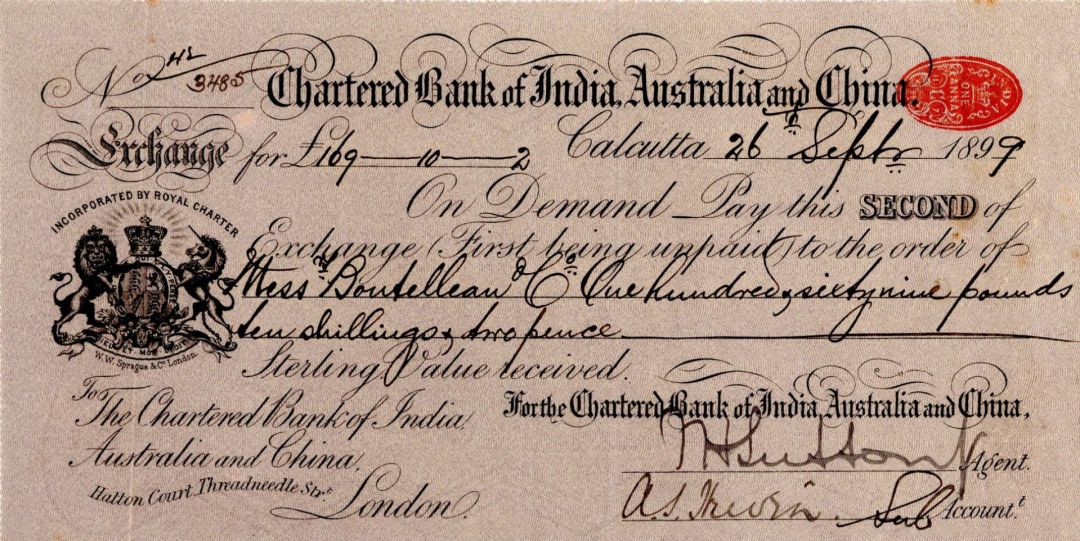 No 42/3485
Chartered Bank of India, Australia and China.
ONE ANNA
Exchange for £169—10—2 Calcutta 26th Septr 1899
On Demand Pay this SECOND of
INCORPORATED BY ROYAL CHARTER
Exchange (First being unpaid) to the order of
Messrs Boutelleau & Co One hundred & sixty nine pounds
ten shillings & two pence
W.W. Sprague & Co London.
Sterling Value received.
To
The Chartered Bank of India
Australia and China.
Hatton Court, Threadneedle Strt
London.
For the Chartered Bank of India, Australia and China,
Agent.
Sub Accountt